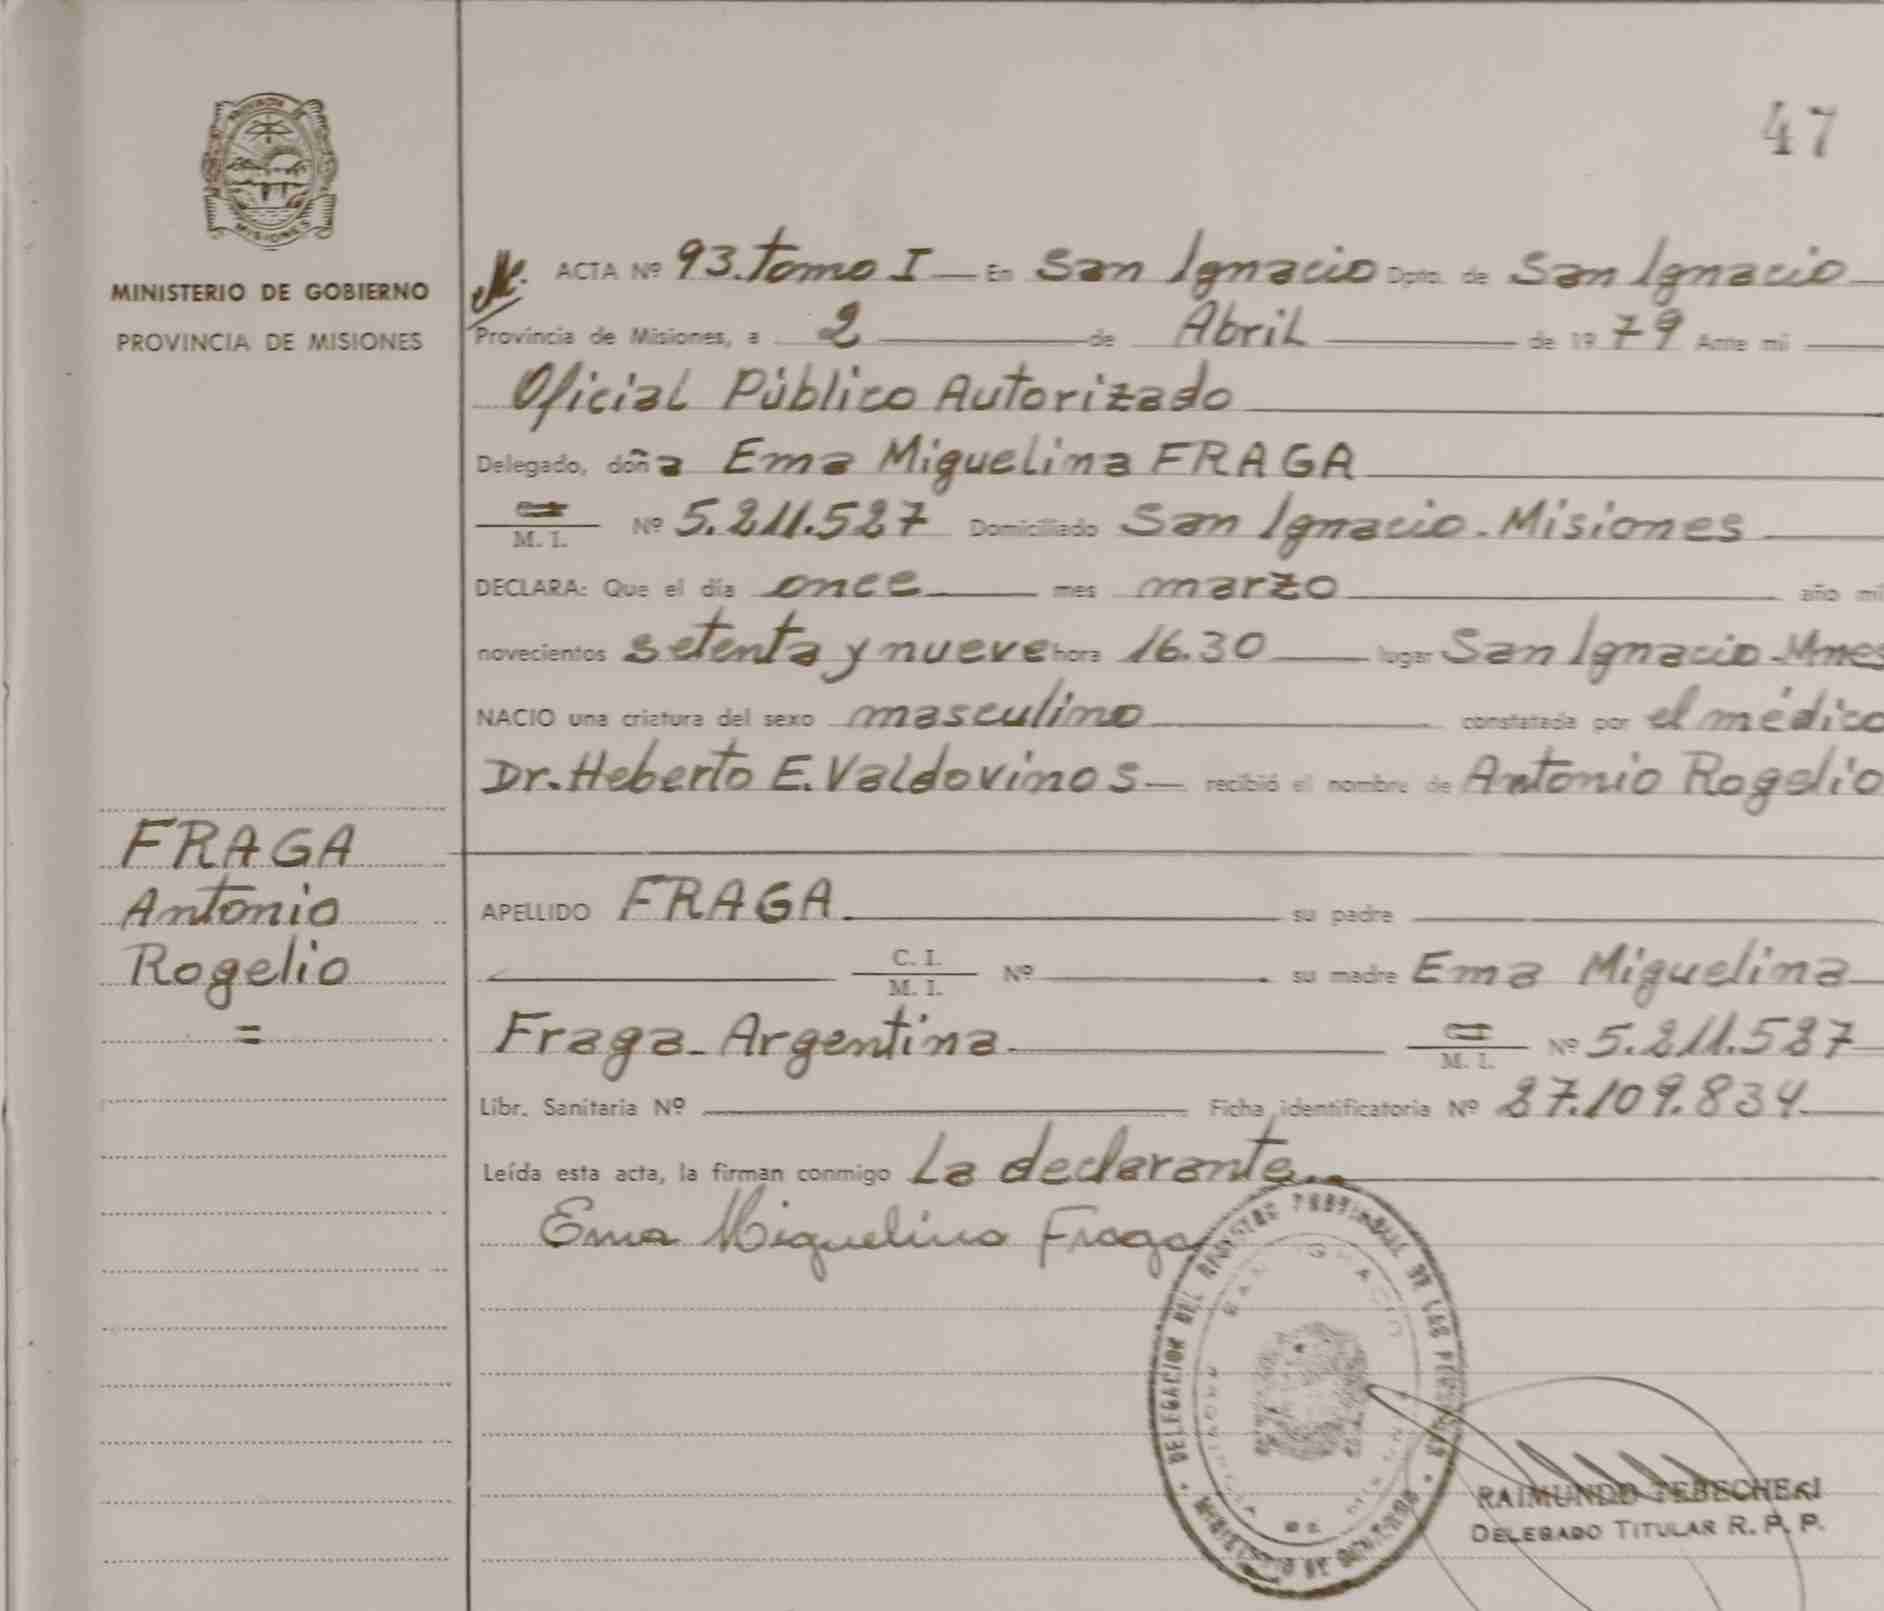 47
PROVINCIA DE
MISIONES
MINISTERIO DE GOBIERNO
PROVINCIA DE MISIONES
ACTA Nº 93. tomo I — En San Ignacio Dpto. de San Ignacio
Provincia de Misiones, a 2 de Abril de 1979 Ante mi
Oficial Público Autorizado
Delegado, doña Ema Miguelina FRAGA
M. I. Nº 5.211.527 Domiciliado San Ignacio - Misiones
DECLARA: Que el día once mes marzo año mil
novecientos setenta y nueve hora 16.30 lugar San Ignacio - Mnes
NACIO una criatura del sexo masculino constatada por el médico
Dr. Heberto E. Valdovinos — recibió el nombre de Antonio Rogelio
FRAGA
Antonio
Rogelio
=
APELLIDO FRAGA. su padre
C. I. / M. I. Nº su madre Ema Miguelina
Fraga - Argentina. M. I. Nº 5.211.527
Libr. Sanitaria Nº Ficha identificatoria Nº 27.109.834
Leída esta acta, la firman conmigo La declarante..
Ema Miguelina Fraga
DELEGACION DEL REGISTRO PROVINCIAL DE LAS PERSONAS
SAN IGNACIO
PROVINCIA DE MISIONES
MINISTERIO DE GOBIERNO
RAIMUNDO TEBECHERI
DELEGADO TITULAR R. P. P.